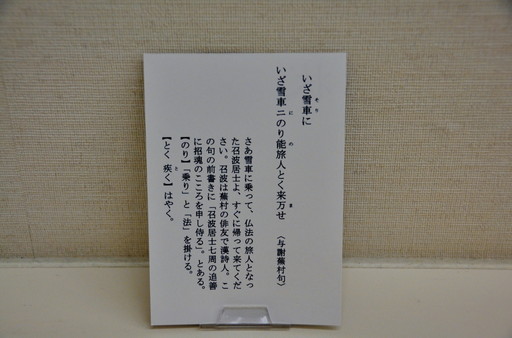 いざ雪車に
いざ雪車二のり能旅人とく来万せ　（与謝蕪村句）
さあ雪車に乗って、仏法の旅人となっ
た召波居士よ、すぐに帰って来てくだ
さい。召波は蕪村の俳友で漢詩人。こ
の句の前書きに「召波居士七周の追善
に招魂のこころを申し侍る」。とある。
【のり】「乗り」と「法」を掛ける。
【とく 疾く】はやく。